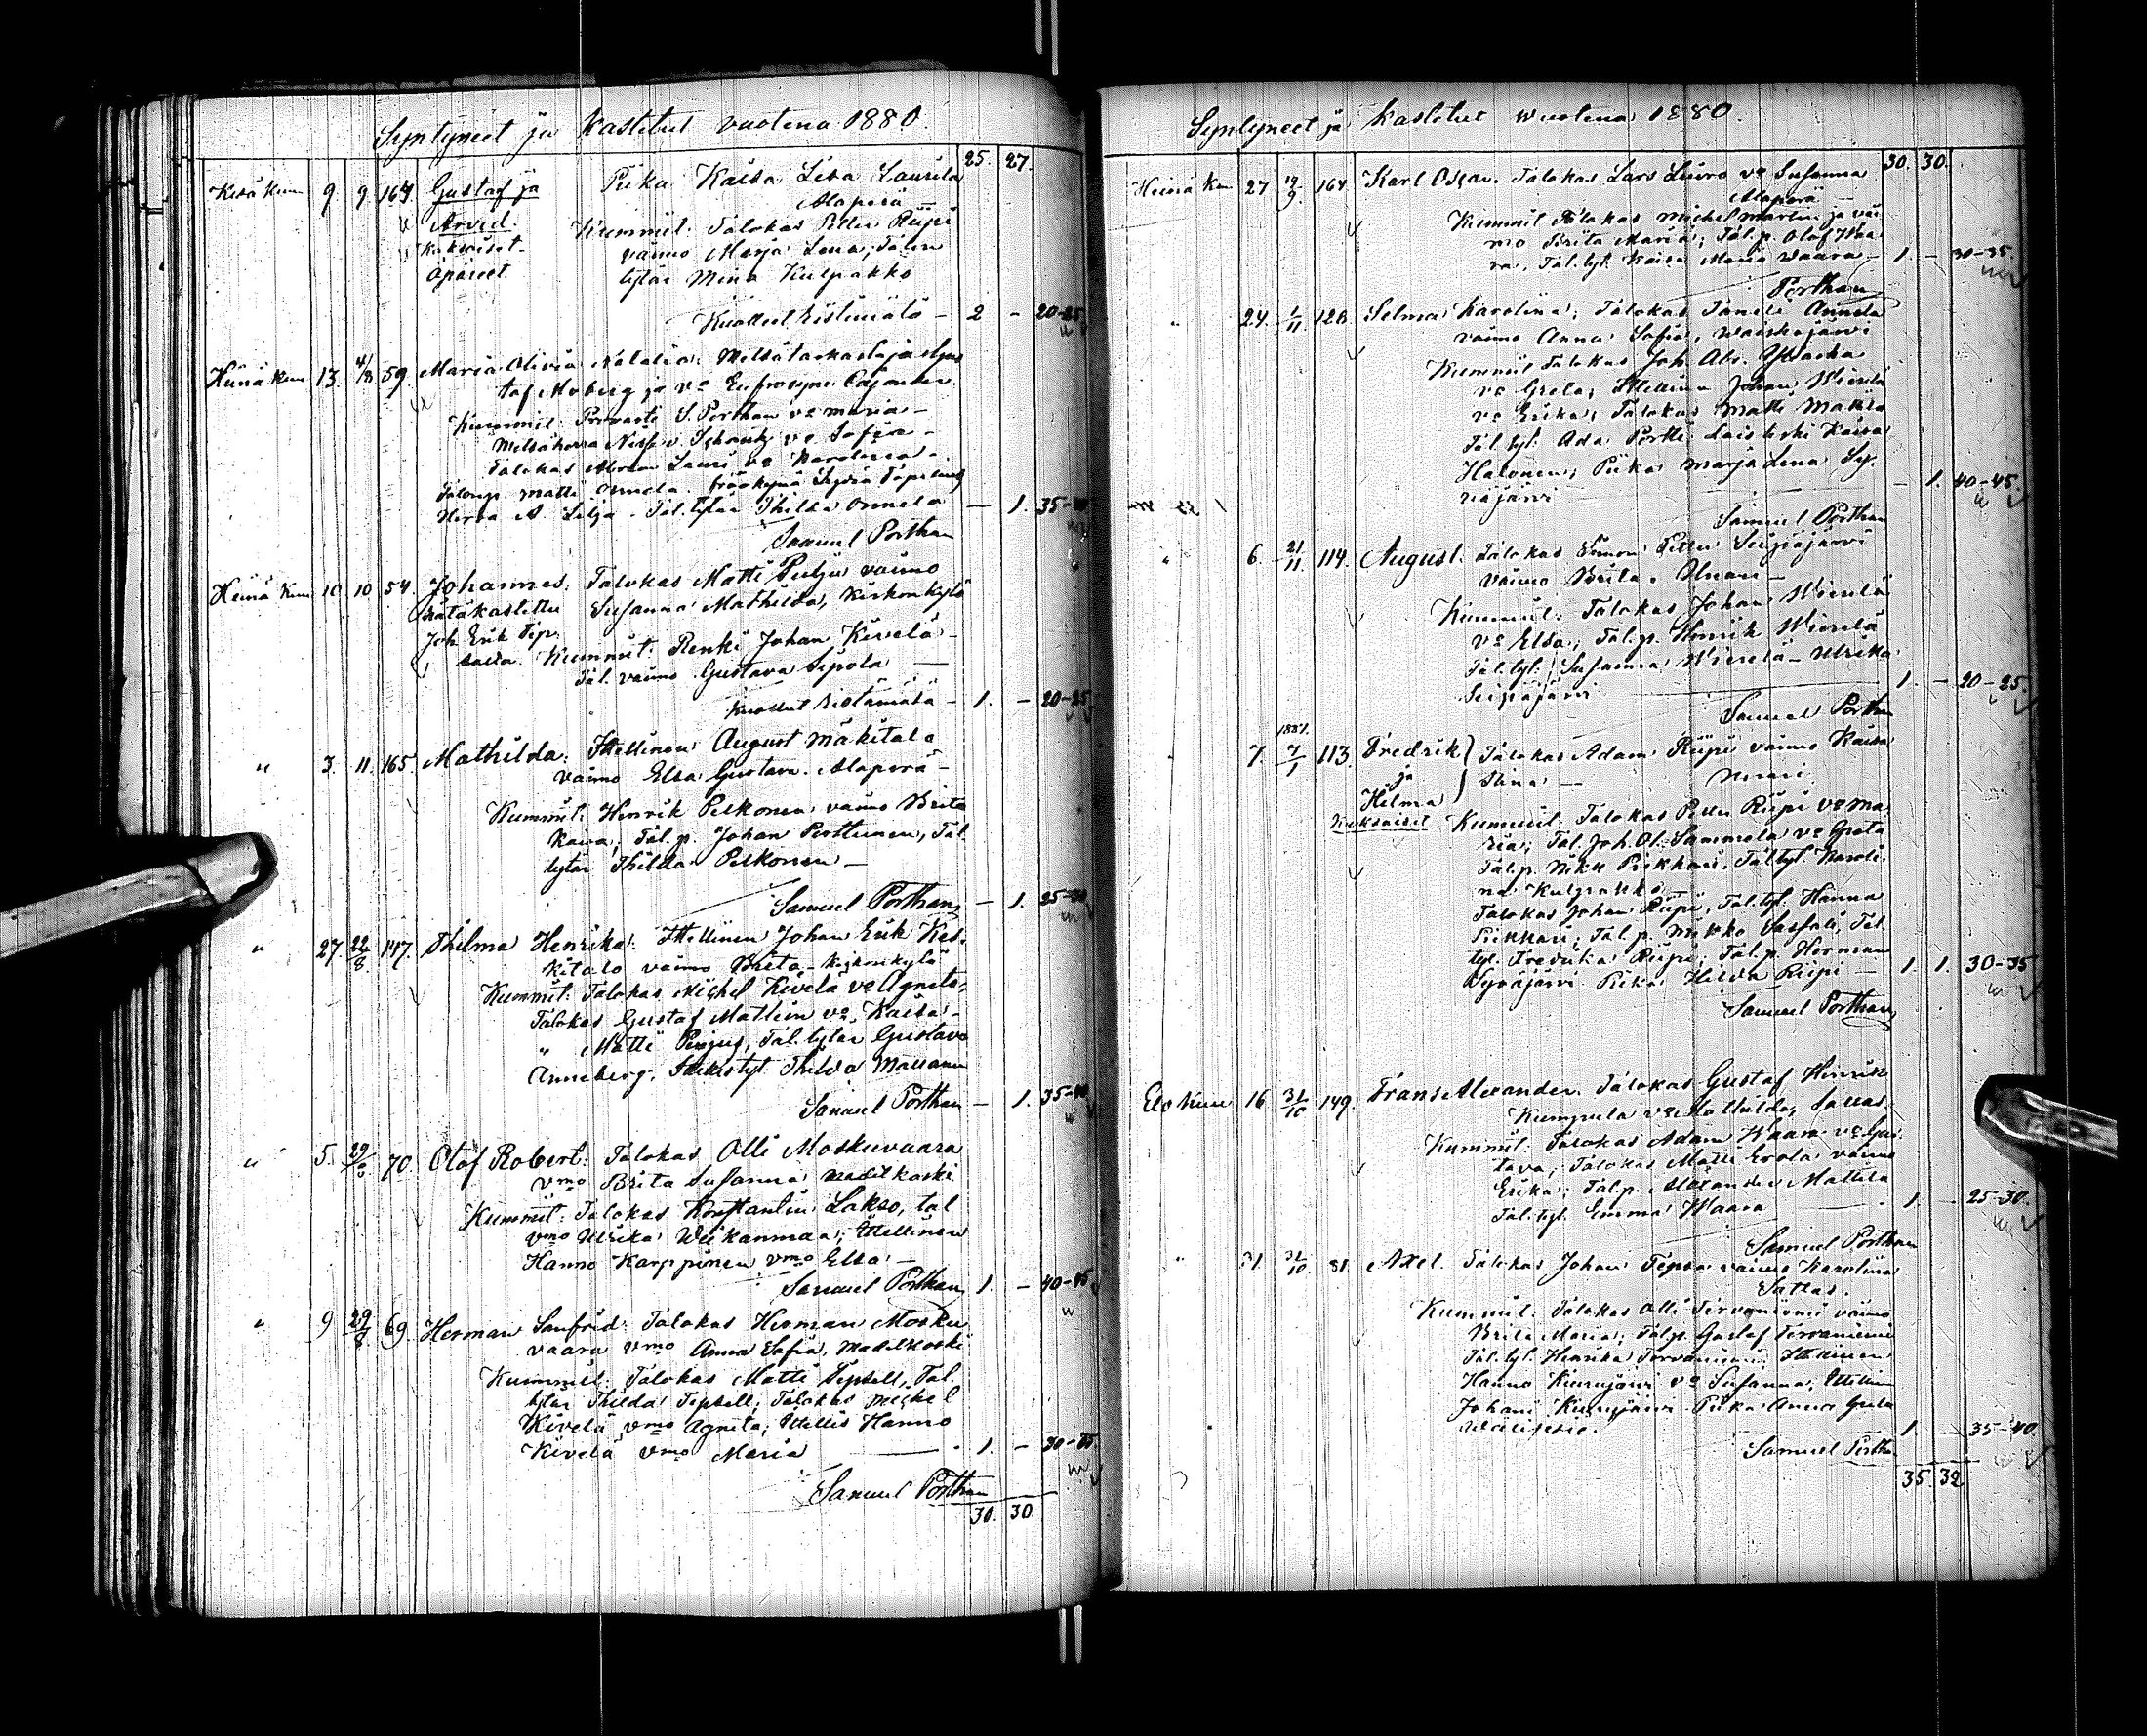 Syntyneet ja kastetut vuotena 1880.
25. 27.
Kesä kuu 9. 9. 164 Gustaf ja Piika Kaisa Lisa Laurila
Arvid. Alaperä —
kaksoiset Kummit: Talokas Petter Riipi
äpäreet. vaimo Marja Lena; Talon
tytär Mina Kulpakko
Kuollut ristimätä — 2 — 20-25
Heinä kuu 13. 4/8 59. Maria Olivia Natalia: Metsätarkastaja Gus
taf Moberg ja vo Eufrosyne Cajander
Kummit: Provasti S. Porthan vo Maria —
Metsäherra v. Schantz vo Sofia —
Talokas Lauri vo Karolina —
Talonp. Matti Onnela. fröökynä Lydia
Herra A. Lilja. Tal. tytär Thilda Onnela — 1. 35-
Samuel Porthan
Heinä kuu 10 10 54. Johannes. Talokas Matti Peljus vaimo
Hätäkastettu Susanna Mathilda, Kirkonkylä
Joh. Erik Tep.
salta. Kummit: Renki Johan Kivelä —
Tal. vaimo Gustava Sipola —
Kuollut ristämätä — 1. — 20-25
" 3. 11. 165. Mathilda: Itellinen August Mäkitalo
vaimo Elsa Gustava. Alaperä —
Kummit: Henrik Pelkonen vaimo Brita
Kaisa; Tal. p. Johan Perttunen, Tal.
tytär Thilda Pelkonen —
Samuel Porthan — 1. 25-30
" 27. 22/8. 147. Thilma Henrika: Itellinen Johan Erik Kes-
kitalo vaimo Brita — Kirkonkylä
Kummit: Talokas Michel Kivelä vo Agneta,
Talokas Gustaf Mattlin vo Kaisa —
" Matti Peljus, Tal. tytär Gustava
Anneberg, tyt. Thilda
Samuel Porthan — 1. 35-40
" 5. 29/8 70. Olof Robert: Talokas Olli Moskuvaara
vmo Brita Susanna Madetkoski
Kummit: Talokas Konstantin Lakso, tal
vmo Ulrika Wiikanmaa; Itellinen
Hanno Karppinen vmo Elsa —
Samuel Porthan 1. — 40-45
" 9 29/8 69. Herman Sanfrid: Talokas Herman Mosku
vaara vmo Anna Sofia, Madetkoski
Kummit: Talokas Matti Tepsell, Tal.
tytär Thilda Tepsell; Talokas Michel
Kivelä vmo Agneta; Itellis Hanno
Kivelä vmo Maria — 1. — 30-35.
Samuel Porthan
30. 30.
Syntyneet ja kastetut wuotena 1880.
30. 30.
Heinä kuu 27 19/9. 164. Karl Oskar. Talokas Lars Luiro vo Susanna
Alaperä —
Kummit Talokas Michel Martin ja vai
mo Brita Maria; Tal. p. Olof Waa
ra. Tal. tyt. Kaisa Maria Waara — 1. — 30-35.
Porthan
" 24. 1/11. 128. Selma Karolina; Talokas Taneli Annela
vaimo Anna Sofia, Waiskojärvi
Kummit Talokas Joh. Abr. Yliaska
vo Greta; Itellinen Johan Wierelä
vo Erika; Talokas Matti Mattila
Tal. tyt. Ada Pertti Kaisa
Halonen; Piika Marja Lena Sy-
väjärvi — 1. 40-45
Samuel Porthan
" 6. 21/11. 114. August. Talokas Simon Petter Seipäjärvi
vaimo Brita. Unari —
Kummit: Talokas Johan Wierelä
vo Elsa; Tal. p. Henrik Wierelä
Tal. tyt. Susanna Wierelä — Ulrika
Seipäjärvi — 1. — 20-25.
Samuel Porthan
1881.
" 7. 7/1 113. Fredrik Talokas Adam Riipi vaimo Kaisa
ja Stina — Unari
Helma
Kaksoiset Kummit: Talokas Petter Riipi vo Ma
ria; Tal. Joh. Ol. Sammela vo Greta
Tal. p. Niku Pirkkari. Tal. tyt. Karoli
na Kulpakko —
Talokas Johan Riipi, Tal. tyt. Hanna
Pirkkari; Tal. p. Mikko Sassali, Tal.
tyt. Fredrika Riipi; Tal. p. Herman
Syväjärvi Piika Hilda Riipi — 1. 1. 30-35
Samuel Porthan
Elo kuu 16 31/10 149. Frans Alexander. Talokas Gustaf Henrik
Kumpula vo Mathilda, Sattas.
Kummit: Talokas Adam Waara vo Gus
tava; Talokas Matti Erola vaimo
Erika; Tal. p. Alexander Mattila
Tal. tyt. Emma Waara — 1. — 25-30.
Samuel Porthan
" 31. 31/10. 81. Axel. Talokas Johan Tepsa vaimo Karolina
Sattas.
Kummit: Talokas Olli Tervaniemi vaimo
Brita Maria; Tal. p. Gustaf Tervaniemi
Tal. tyt. Henrika Tervaniemi. Itellinen
Hanno Kiurujärvi vo Susanna, Itellinen
Johani Kiurujärvi Piika Anna Greta
1. — 35-40.
Samuel Porthan
35. 32